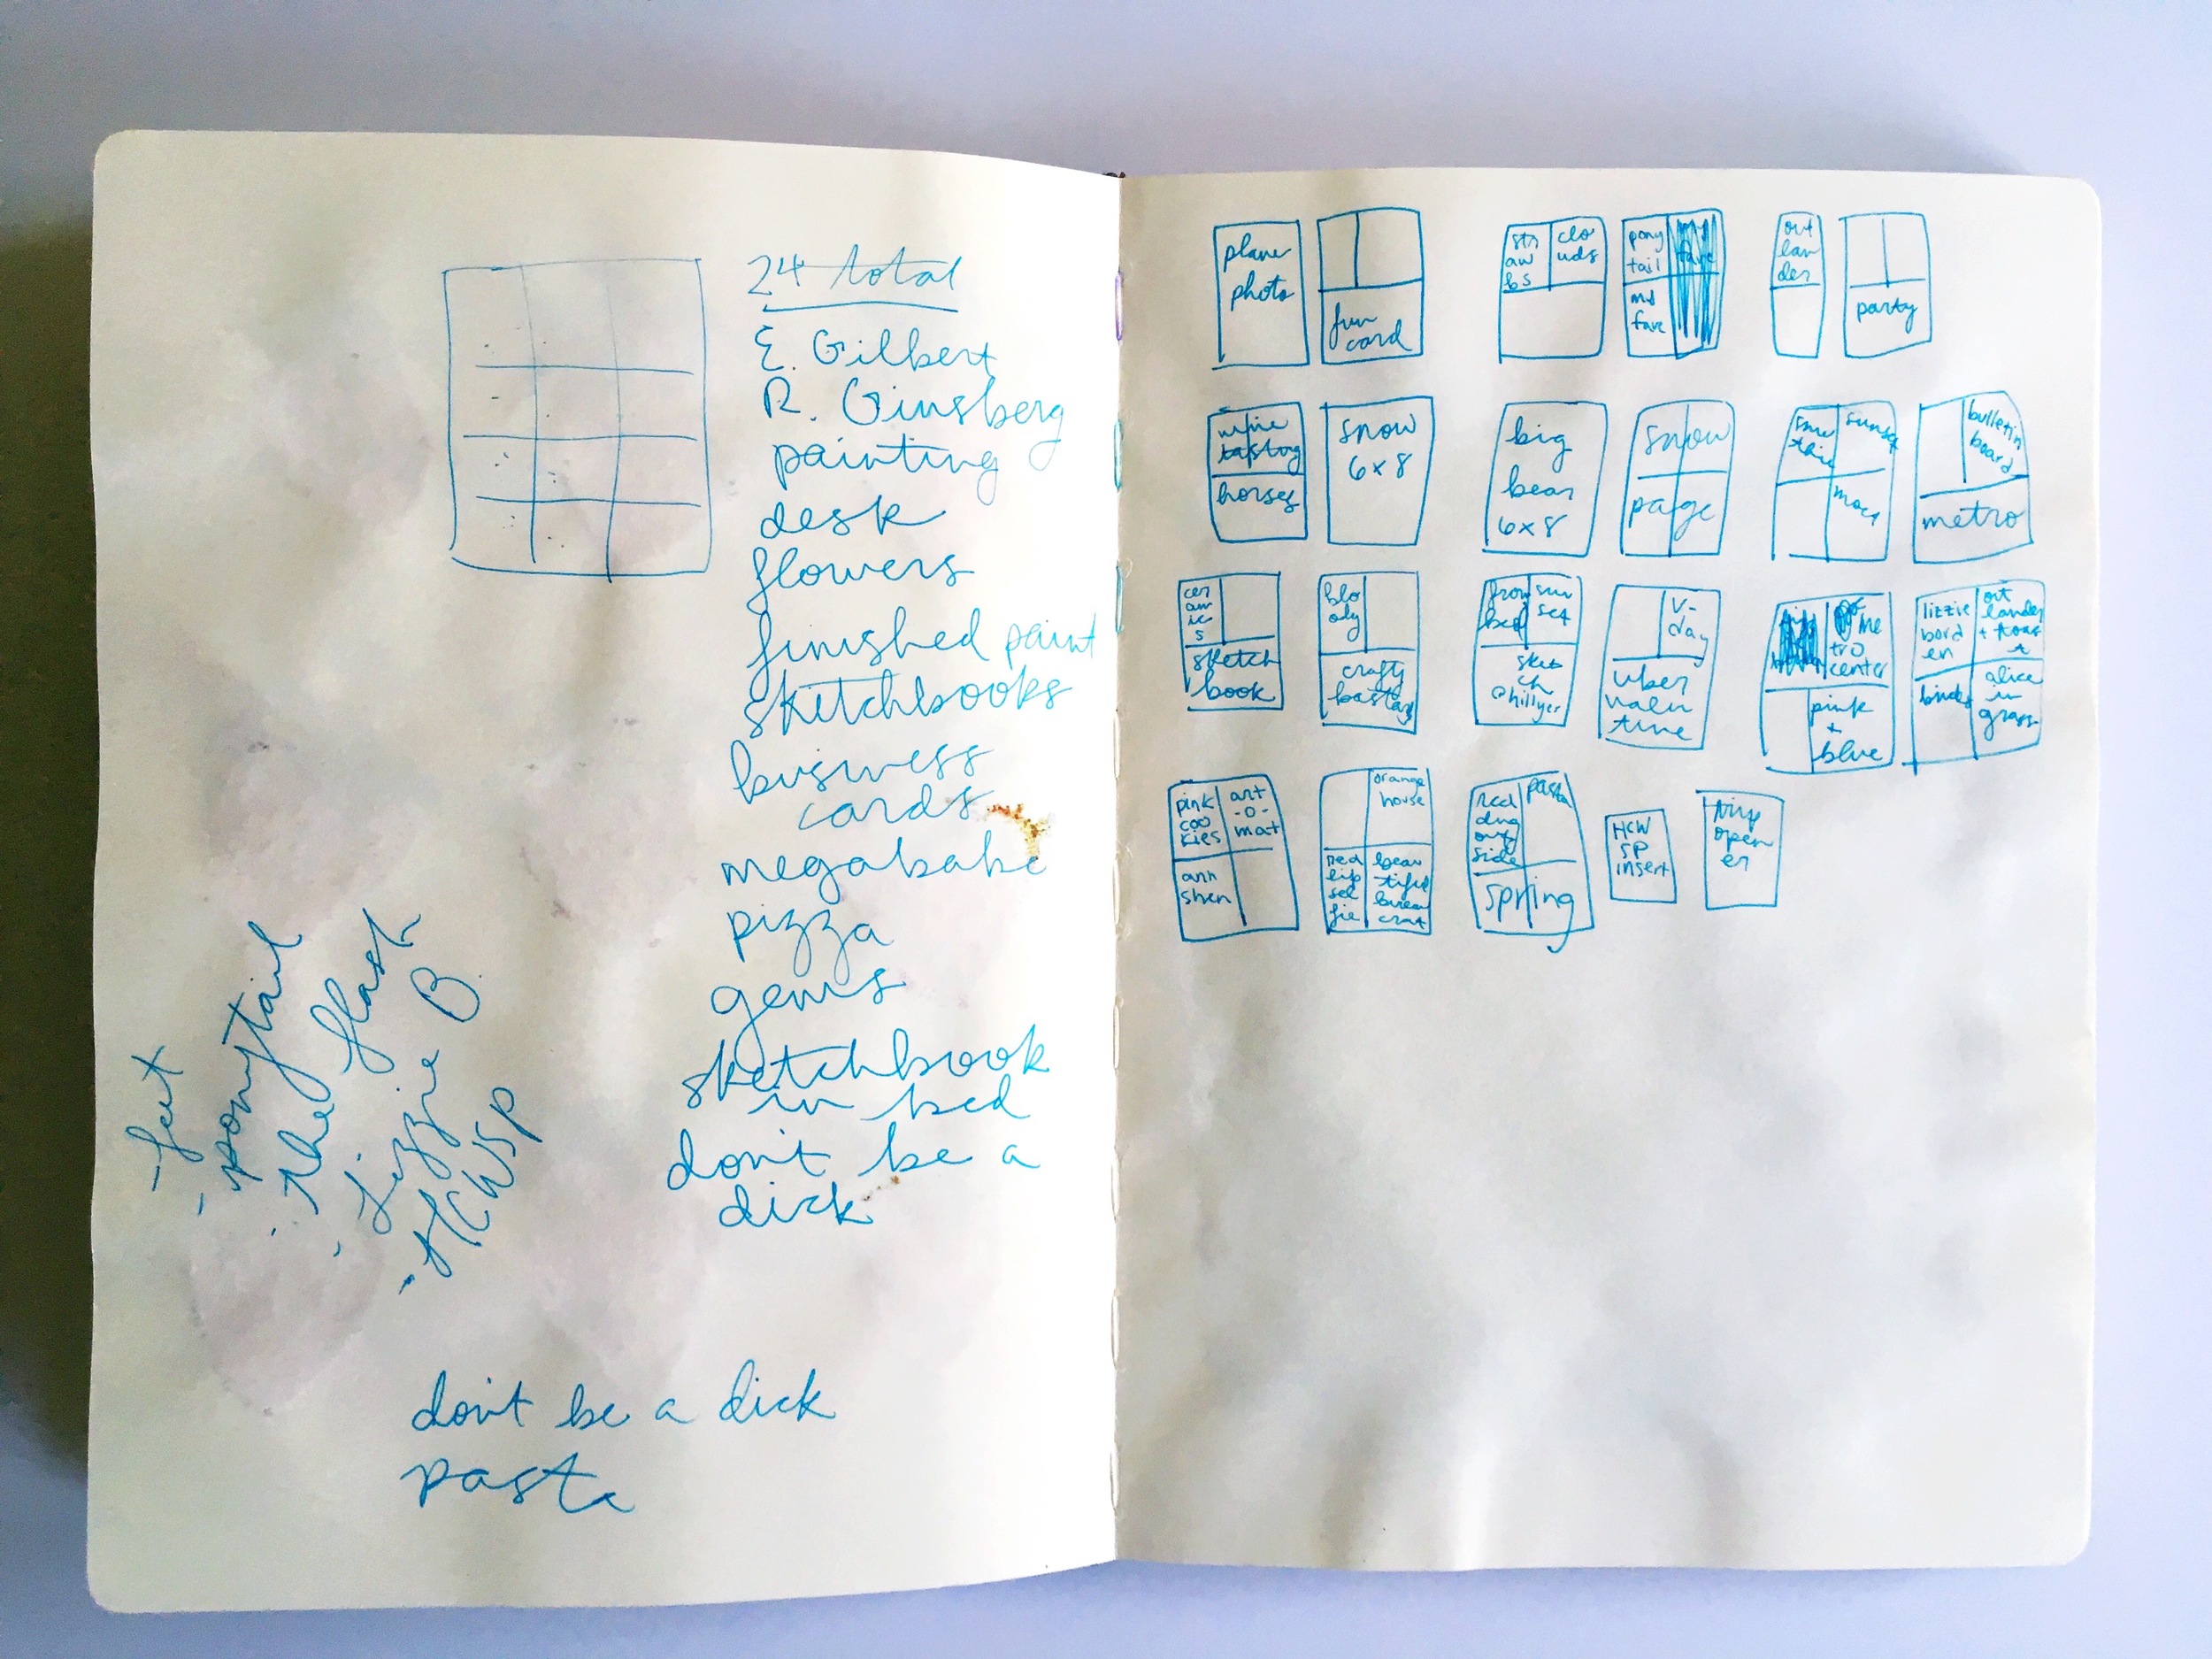 24 total
E. Gilbert
R. Ginsberg
painting
desk
flowers
finished paint
sketchbooks
business
cards
megababe
pizza
gems
sketchbook
in bed
don't be a
dick
- feet
- ponytail
- the flash
- Lizzie B.
- HCWSP
don't be a dick
pasta
plane
photo
fun
card
str
aw
bs
clo
uds
pony
tail
fave
fave
out
lan
der
party
wine
tasting
horses
snow
6x8
big
bear
6x8
snow
page
sunset
bulletin
board
metro
cer
am
ic
s
sketch
book
blo
ody
crafty
bastard
sun
set
sket
ch
@hillyer
V-
day
uber
valen
tine
me
tro
center
pink
+
blue
lizzie
bord
en
out
lander
+ roas
t
alice
in
grass
pink
coo
kies
art
-o-
mat
ann
shen
orange
house
red
lip
sel
fie
beau
tiful
bureau
crat
red
dng
out
side
pasta
spring
HCW
SP
insert
open
er